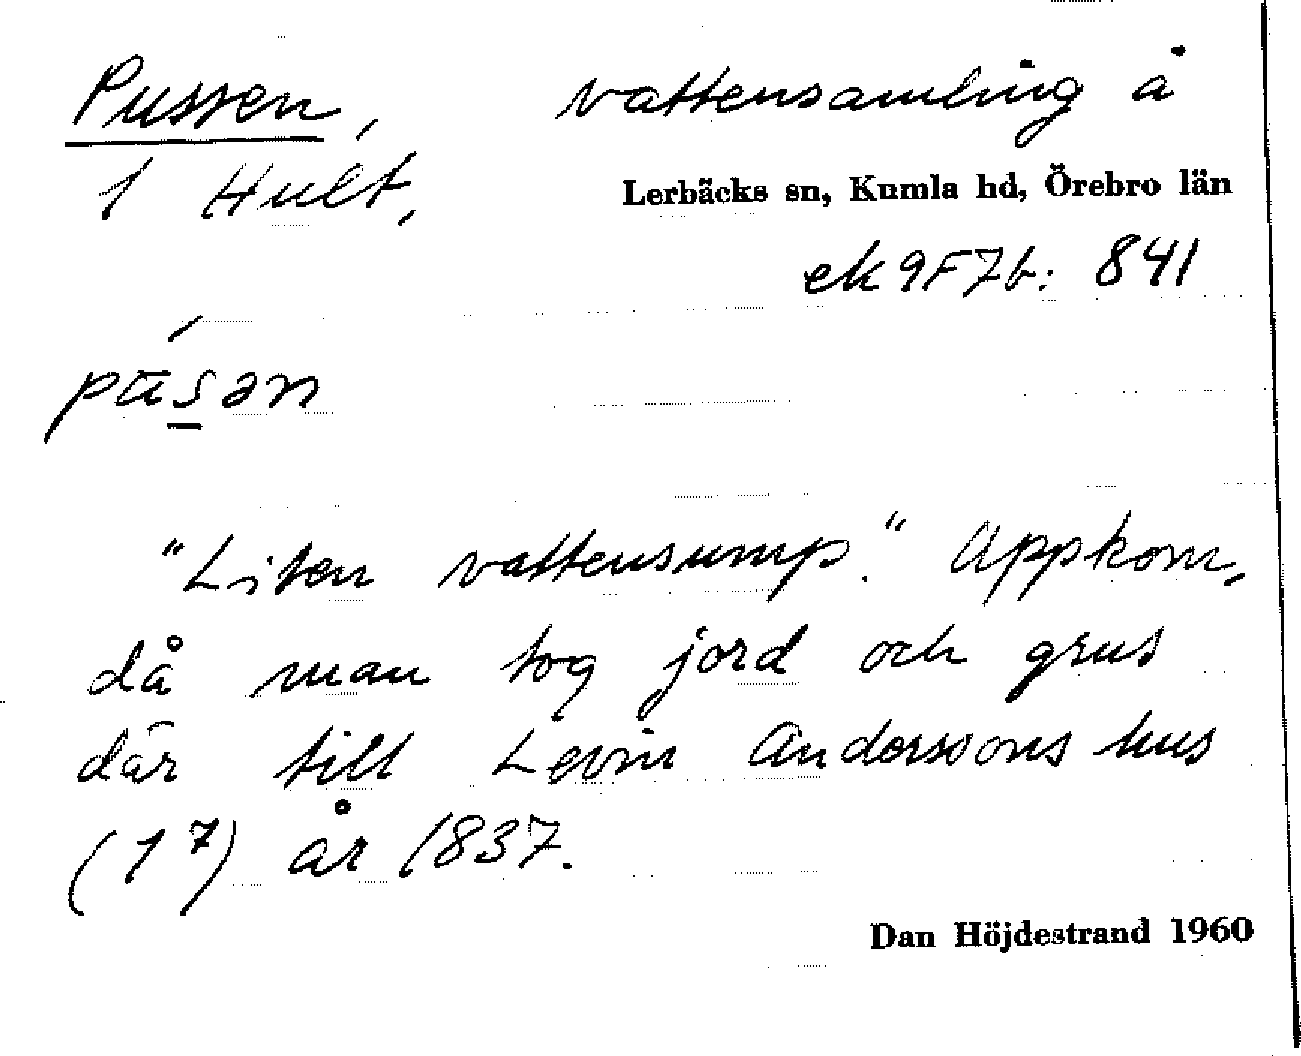 Pussen, vattensamling å
1 Hult, Lerbäcks sn, Kumla hd, Örebro län
ek 9F7b: 841
pu̇́s̲ən
"Liten vattensump." Uppkom,
då man tog jord och grus
där till Levin Anderssons hus
(1⁷) år 1837.
Dan Höjdestrand 1960